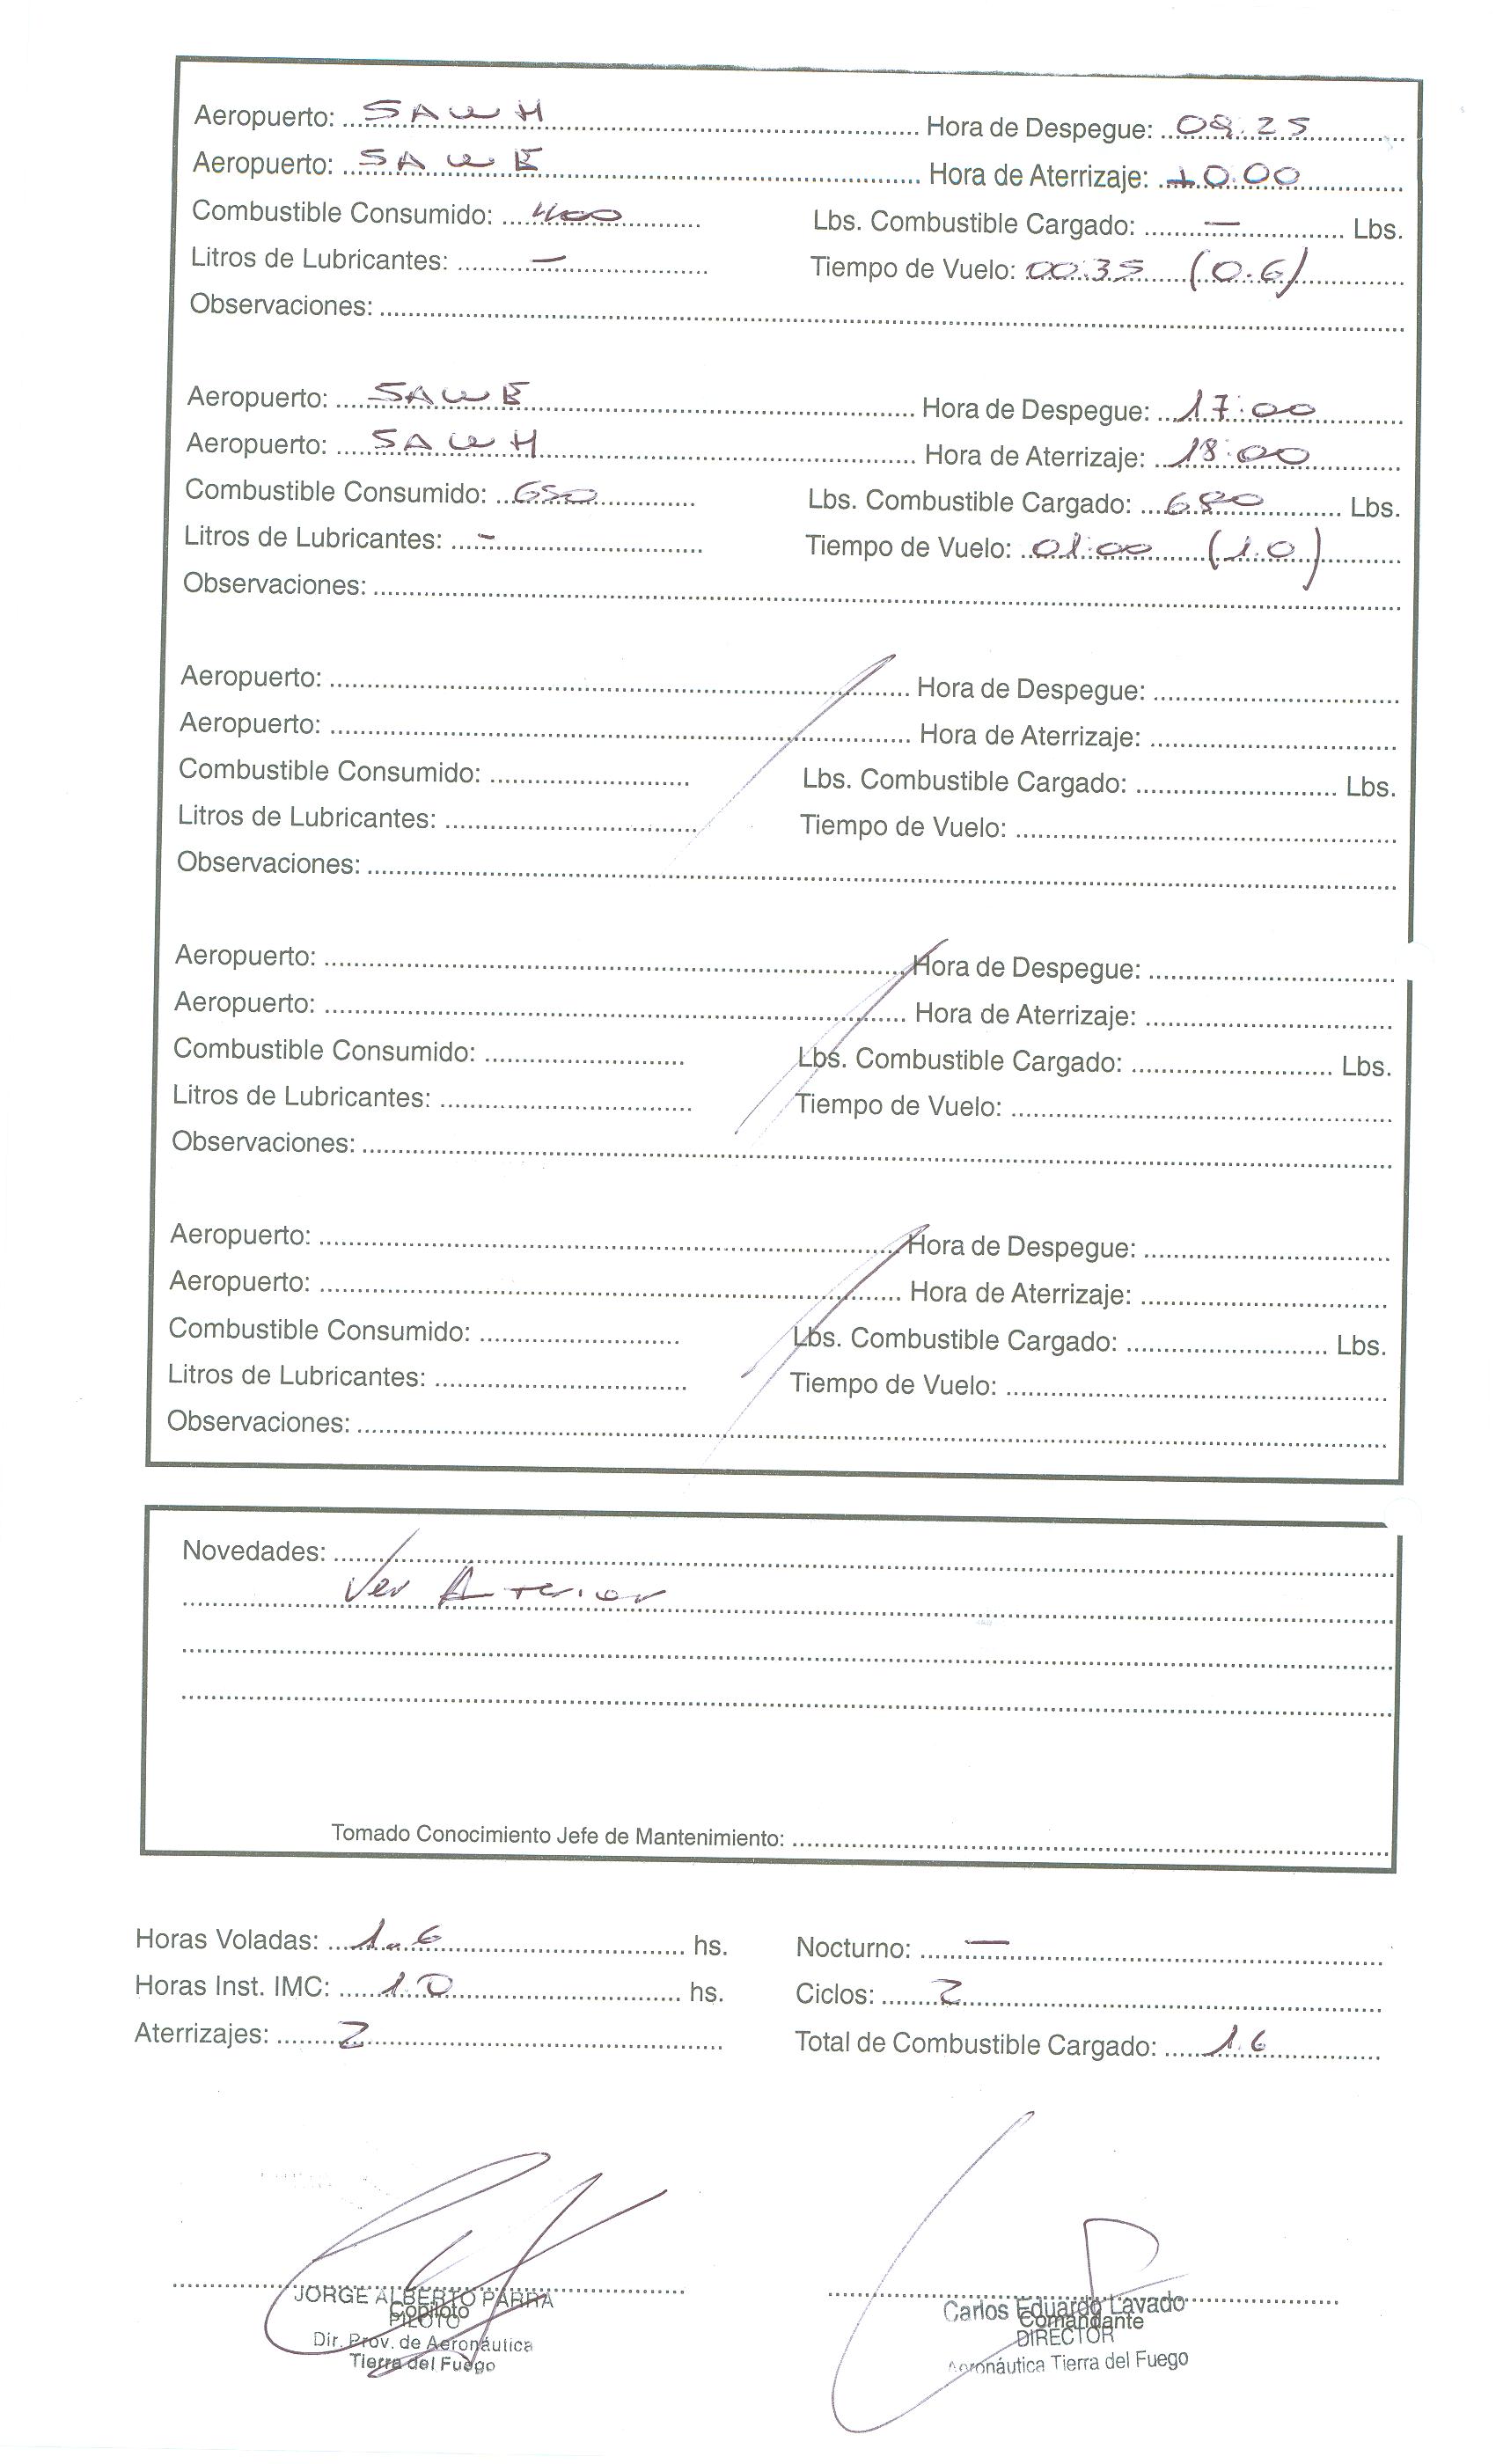 Aeropuerto: SAWH Hora de Despegue: 09:25
Aeropuerto: SAWE Hora de Aterrizaje: 10:00
Combustible Consumido: 400 Lbs. Combustible Cargado: — Lbs.
Litros de Lubricantes: — Tiempo de Vuelo: 00:35 (0.6)
Observaciones:
Aeropuerto: SAWE Hora de Despegue: 17:00
Aeropuerto: SAWH Hora de Aterrizaje: 18:00
Combustible Consumido: 650 Lbs. Combustible Cargado: 680 Lbs.
Litros de Lubricantes: - Tiempo de Vuelo: 01:00 (1.0)
Observaciones:
Aeropuerto: Hora de Despegue:
Aeropuerto: Hora de Aterrizaje:
Combustible Consumido: Lbs. Combustible Cargado: Lbs.
Litros de Lubricantes: Tiempo de Vuelo:
Observaciones:
Aeropuerto: Hora de Despegue:
Aeropuerto: Hora de Aterrizaje:
Combustible Consumido: Lbs. Combustible Cargado: Lbs.
Litros de Lubricantes: Tiempo de Vuelo:
Observaciones:
Aeropuerto: Hora de Despegue:
Aeropuerto: Hora de Aterrizaje:
Combustible Consumido: Lbs. Combustible Cargado: Lbs.
Litros de Lubricantes: Tiempo de Vuelo:
Observaciones:
Novedades:
Ver Anterior
Tomado Conocimiento Jefe de Mantenimiento:
Horas Voladas: 1.6 hs. Nocturno: —
Horas Inst. IMC: 1.0 hs. Ciclos: 2
Aterrizajes: 2 Total de Combustible Cargado: 1.6
JORGE ALBERTO PARRA
Copiloto
PILOTO
Dir. Prov. de Aeronáutica
Tierra del Fuego
Carlos Eduardo Lavado
Comandante
DIRECTOR
Aeronáutica Tierra del Fuego